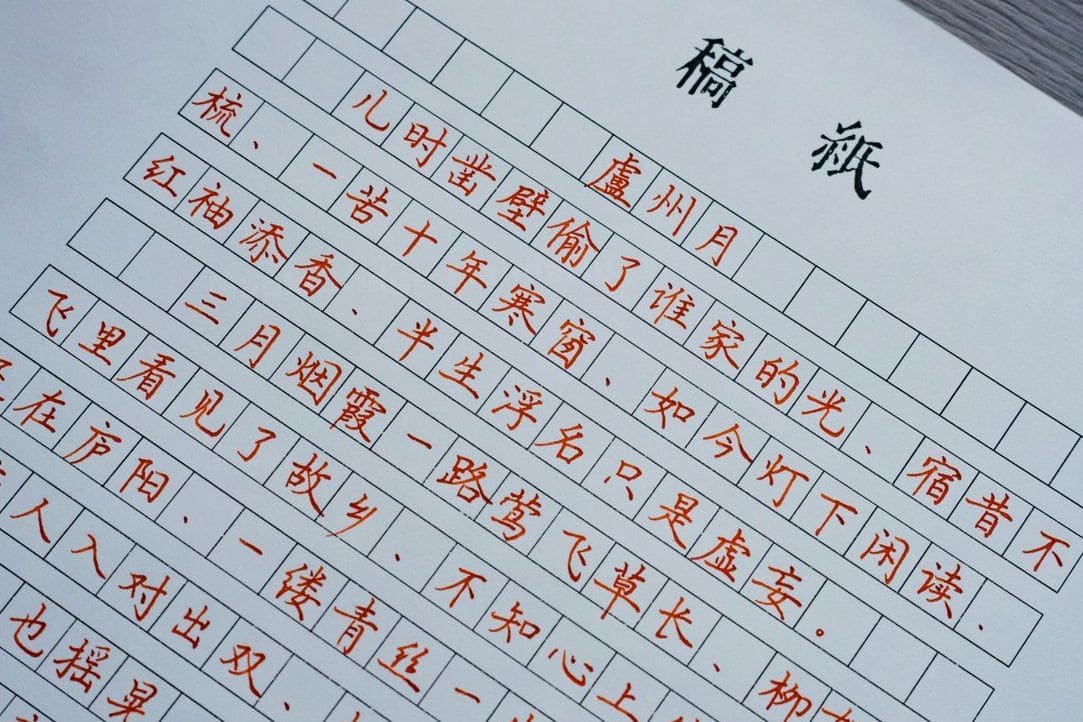 稿紙
盧州月
儿时凿壁偷了谁家的光、宿昔不
梳、一苦十年寒窗、如今灯下闲读、
红袖添香、半生浮名只是虚妄。
三月烟霞一路莺飞草长、柳
飞里看见了故乡、不知心上
在庐阳、一缕青丝一
人入对出双、
也摇晃